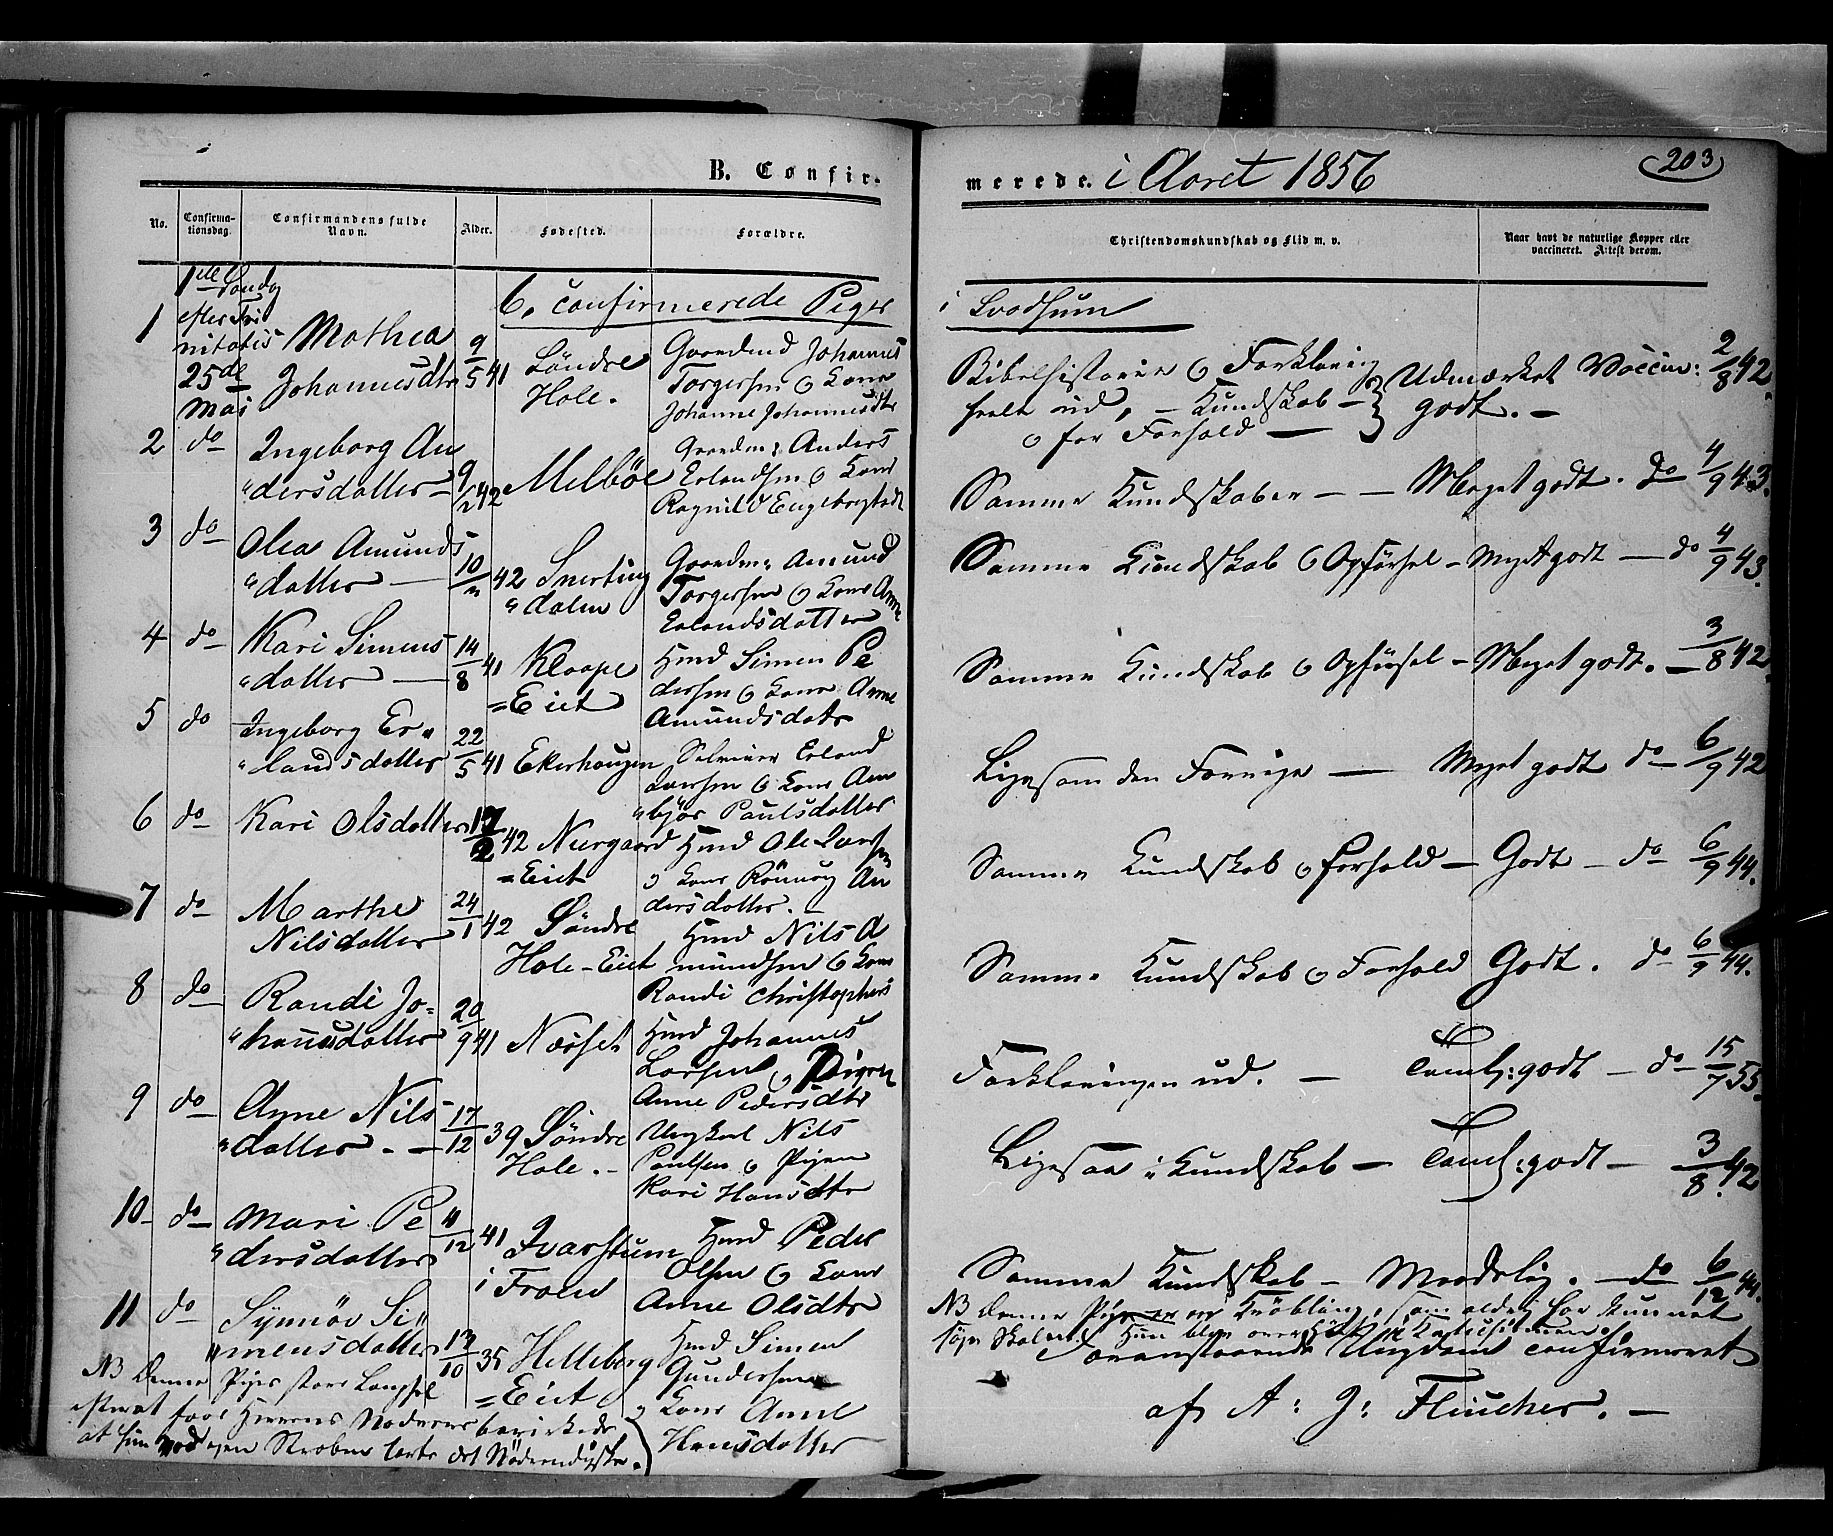 B. Confir-
merede. i Aaret 1856
203
No.
Confirma-
tionsdag.
Confirmandens fulde
Navn.
Alder.
Fødested.
Forældre.
Christendomskundskab og Flid m. v.
Naar havt de naturlige Kopper eller
vaccineret. Attest derom.
6, confirmerede Piger
i Svadsum
1 1ste Søndag
efter Tri
nitatis
25de
Mai
Mathea
Johannesdtr
9/5 41
Søndre
Hole.
Gaardmd Johannes
Torgersen & Kone
Johanne Johannesdtr
Bibelhistorie & Forklaring
heelt ud, - Kundskab -
& for Forhold —
Udmærket
godt. -
Vaccin: 2/8 42.
2 do
Ingeborg An
"dersdatter -
9/2 42
Melbøe
Gaardm: Anders
Erlandsen & Kone
Ragnild Engebregtsdtr
Samme Kundskaber - - Meget godt. do 4/9 43.
3 do
Olea Amunds
"datter —
10/11 42
Snerting
"dalen
Gaardm: Amund
Torgersen & Kone Anne
Erlandsdatter
Samme Kundskab & Opførsel - Meget godt — do 4/9 43.
4 do
Kari Simens
"datter —
14/8 41
Kloape
=Eiet
Hmd Simen Pe
dersen & Kone Anne
Amundsdatr
Samme Kundskab & Opførsel - Meget godt. — 3/8 42.
5 do
Ingeborg Er"
"landsdatter
22/5 41
Ekerhaugen
Selveier Erland
Iversen & Kone Am
"bjør Paulsdatter
Ligesom den Forrige — Meget godt do 6/9 42
6 do
Kari Olsdatter
17/2 42
Nergaard
=Eiet
Hmd Ole Larsen
& Kone Rønnøg An
dersdatter. -
Samme Kundskab & Forhold - Godt - do 6/9 44.
7 do
Marthe
Nilsdatter
24/1 42
Søndre
Hole-Eiet
Hmd Nils A
mundsen & Kone
Randi Christophers
Samme Kundskab & Forhold Godt. do 6/9 44.
8 do
Randi Jo-
"hannesdatter
20/9 41
Nørset
Hmd Johannes
Larsen & Pigen
Anne Pedersdtr
Forklaringen ud. - Taml:godt - do 15/7 55.
9 do
Anne Nils
"datter. -
17/12 39
Søndre
Hole. -
Ungkarl Nils
Paulsen & Pigen
Kari Hansdtr
Ligesaa i Kundskab - Taml:godt - 3/8. 42
10 do
Mari Pe
"dersdatter
4/12 41
Ivarstuen
i Froen
Hmd Peder
Olsen & Kone
Anne Olsdtr
Samme Kundskab - Maadelig. - do 6/12 44.
11 do
Synnøv Si"
"mensdatter
13/10 35
Helleberg
=Eiet
Hmd Simen
Gundersen
& Kone Anne
Hansdatter
NB Denne Pige er en Krøbling, som aldrig har kunnet
søge Skolen. Hun blev overhørt i Katechismen.
NB Denne Piges store Længsel
efter at faae Herrens Nadvere bevirkede,
at hun ved egen Stræben lærte det Nødvendigste.
Foranstaaende Ungdom confirmeret
af A: J: Fleischer. -